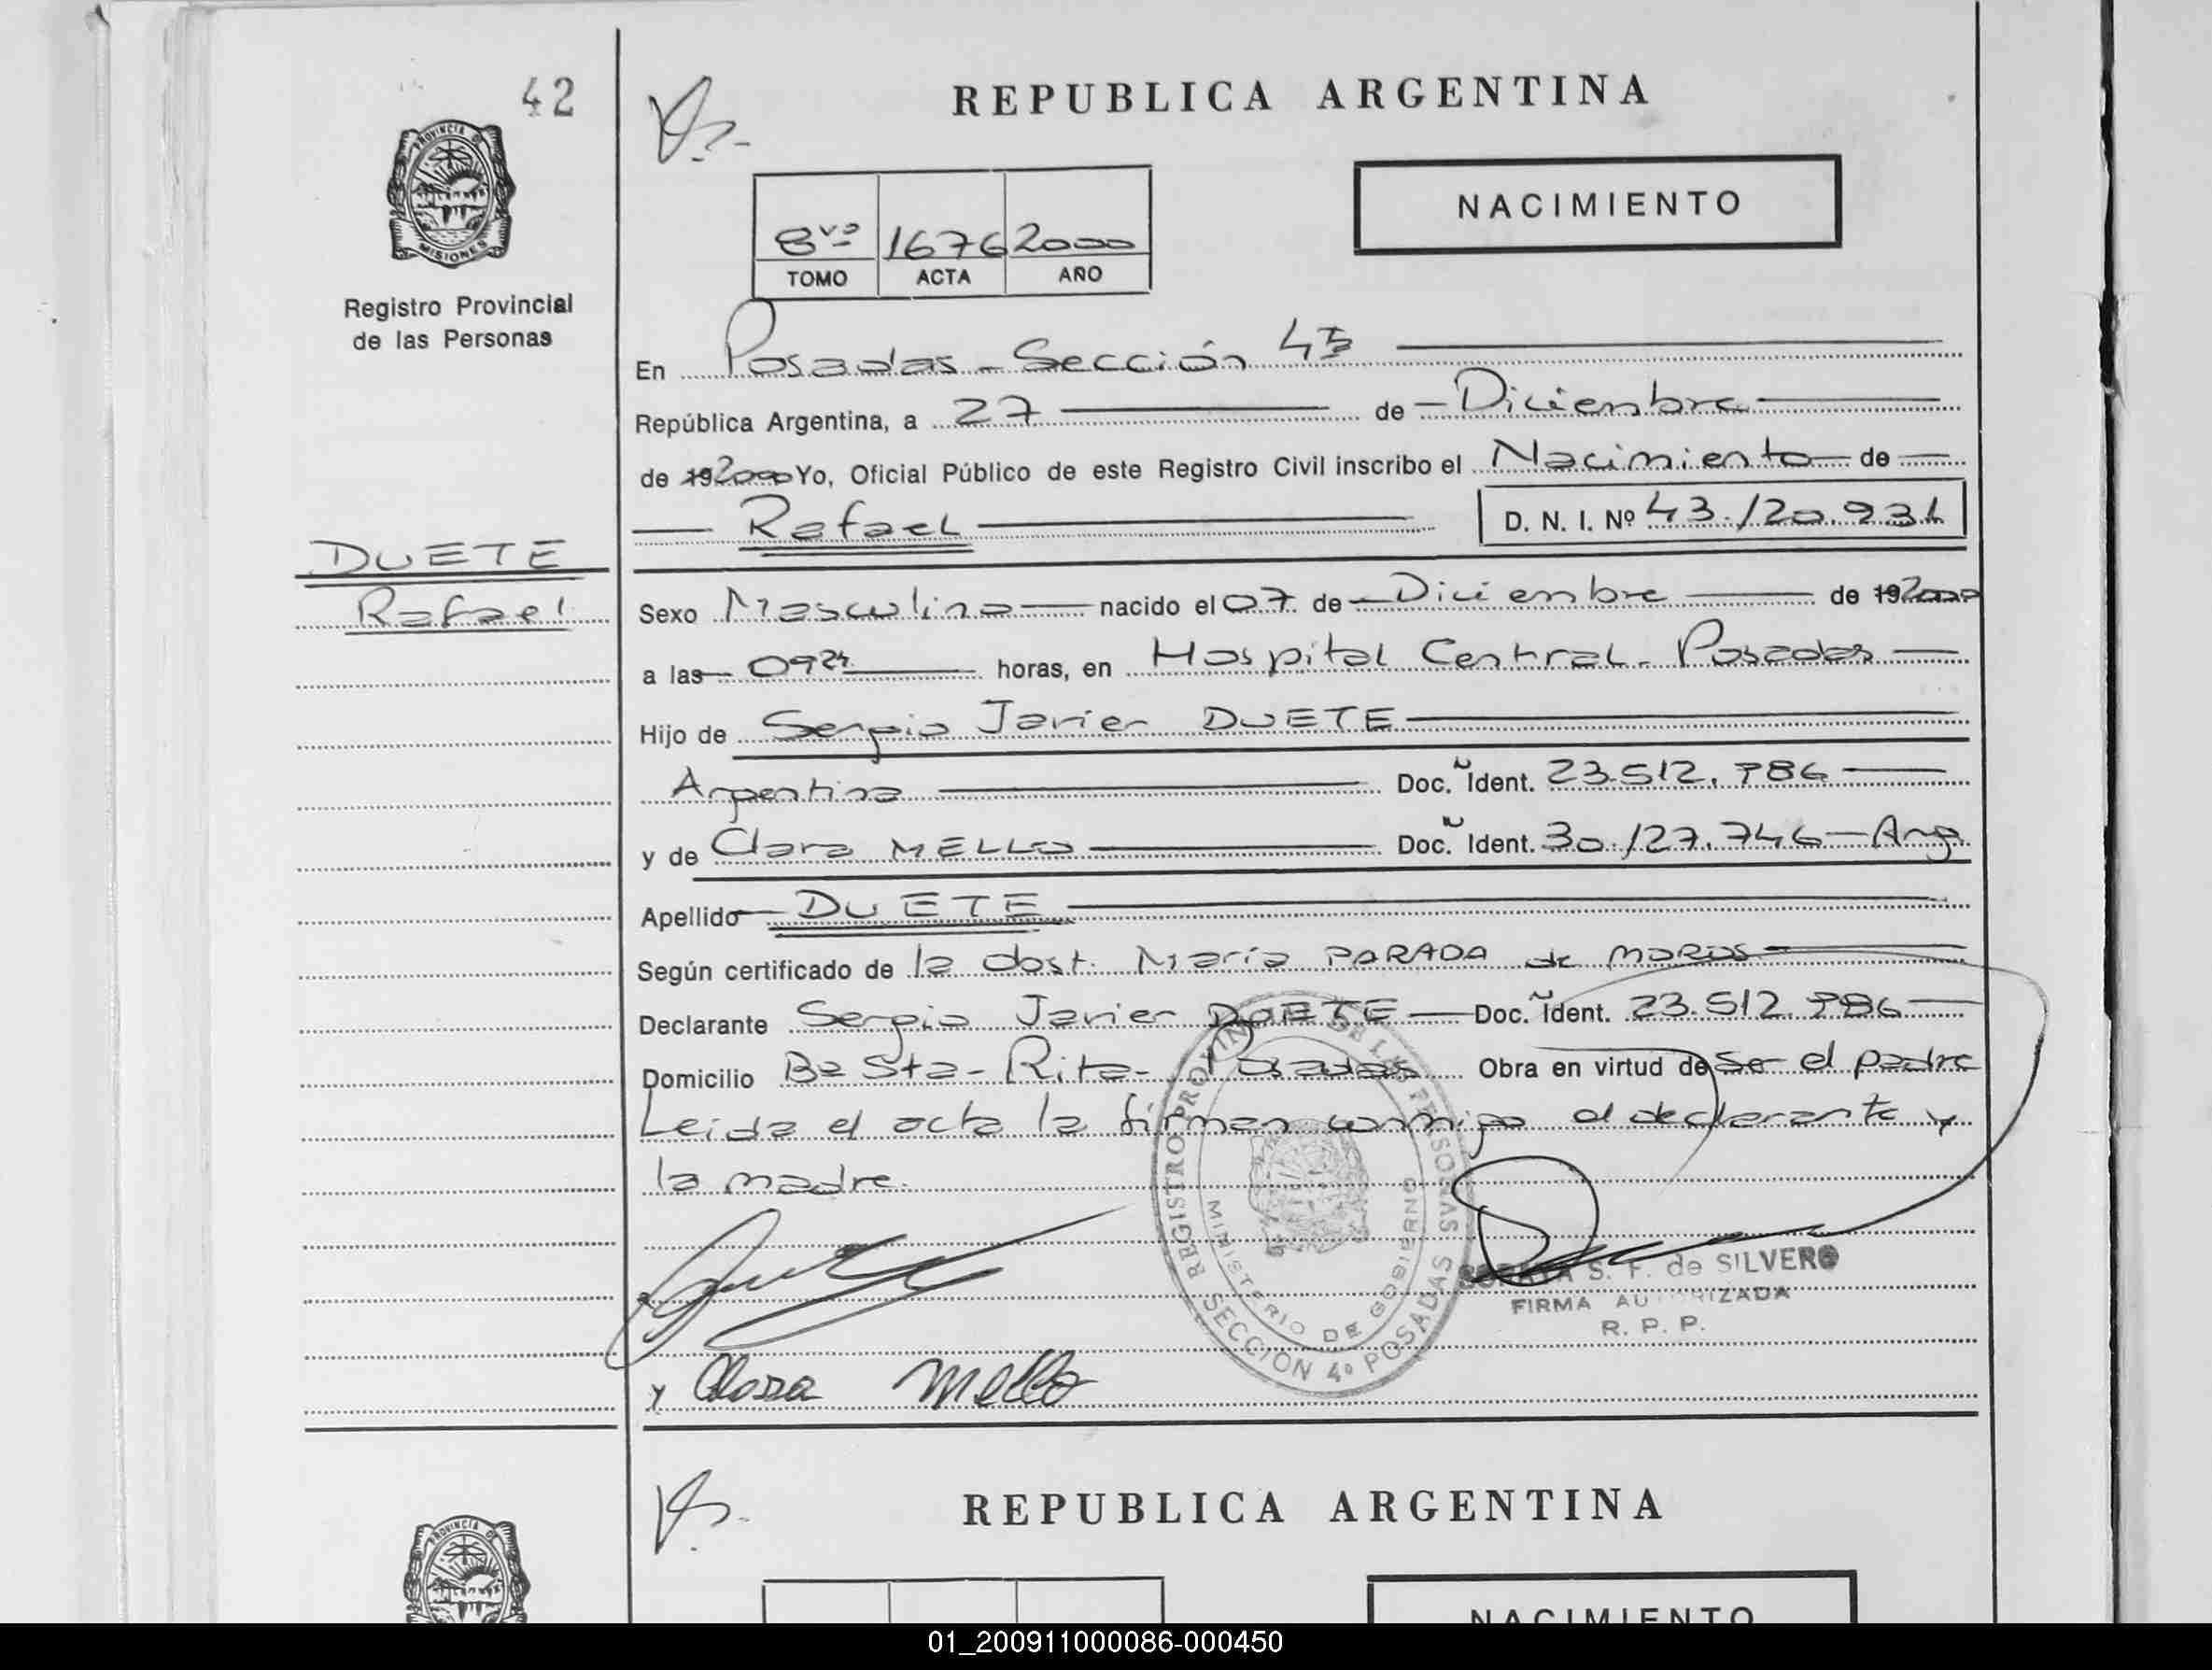 42
REPUBLICA ARGENTINA
PROVINCIA DE
MISIONES
NACIMIENTO
8vo 1676 2000
TOMO ACTA AÑO
Registro Provincial
de las Personas
En Posadas - Sección 4ta
República Argentina, a 27 de Diciembre
de 19 2000 Yo, Oficial Público de este Registro Civil inscribo el Nacimiento de
Rafael D. N. I. Nº 43.120.931
DUETE
Rafael
Sexo Masculino nacido el 07 de Diciembre de 19 2000
a las 09 24 horas, en Hospital Central - Posadas
Hijo de Sergio Javier DUETE
Argentina Doc. Ident. 23.512.786
y de Clara MELLO Doc. Ident. 30.127.746 - Arg.
Apellido DUETE
Según certificado de la obst. María PARADA de
Declarante Sergio Javier DUETE Doc. Ident. 23.512.786
Domicilio Bº Sta- Rita- Posadas Obra en virtud de ser el padre
Leida el acta la firman conmigo el declarante y
la madre.
REGISTRO PROVINCIAL DE LAS PERSONAS
MINISTERIO DE GOBIERNO
SECCION 4º POSADAS
S. F. de SILVERO
FIRMA AUTORIZADA
R. P. P.
y Clara Mello
REPUBLICA ARGENTINA
PROVINCIA DE
NACIMIENTO
01_200911000086-000450